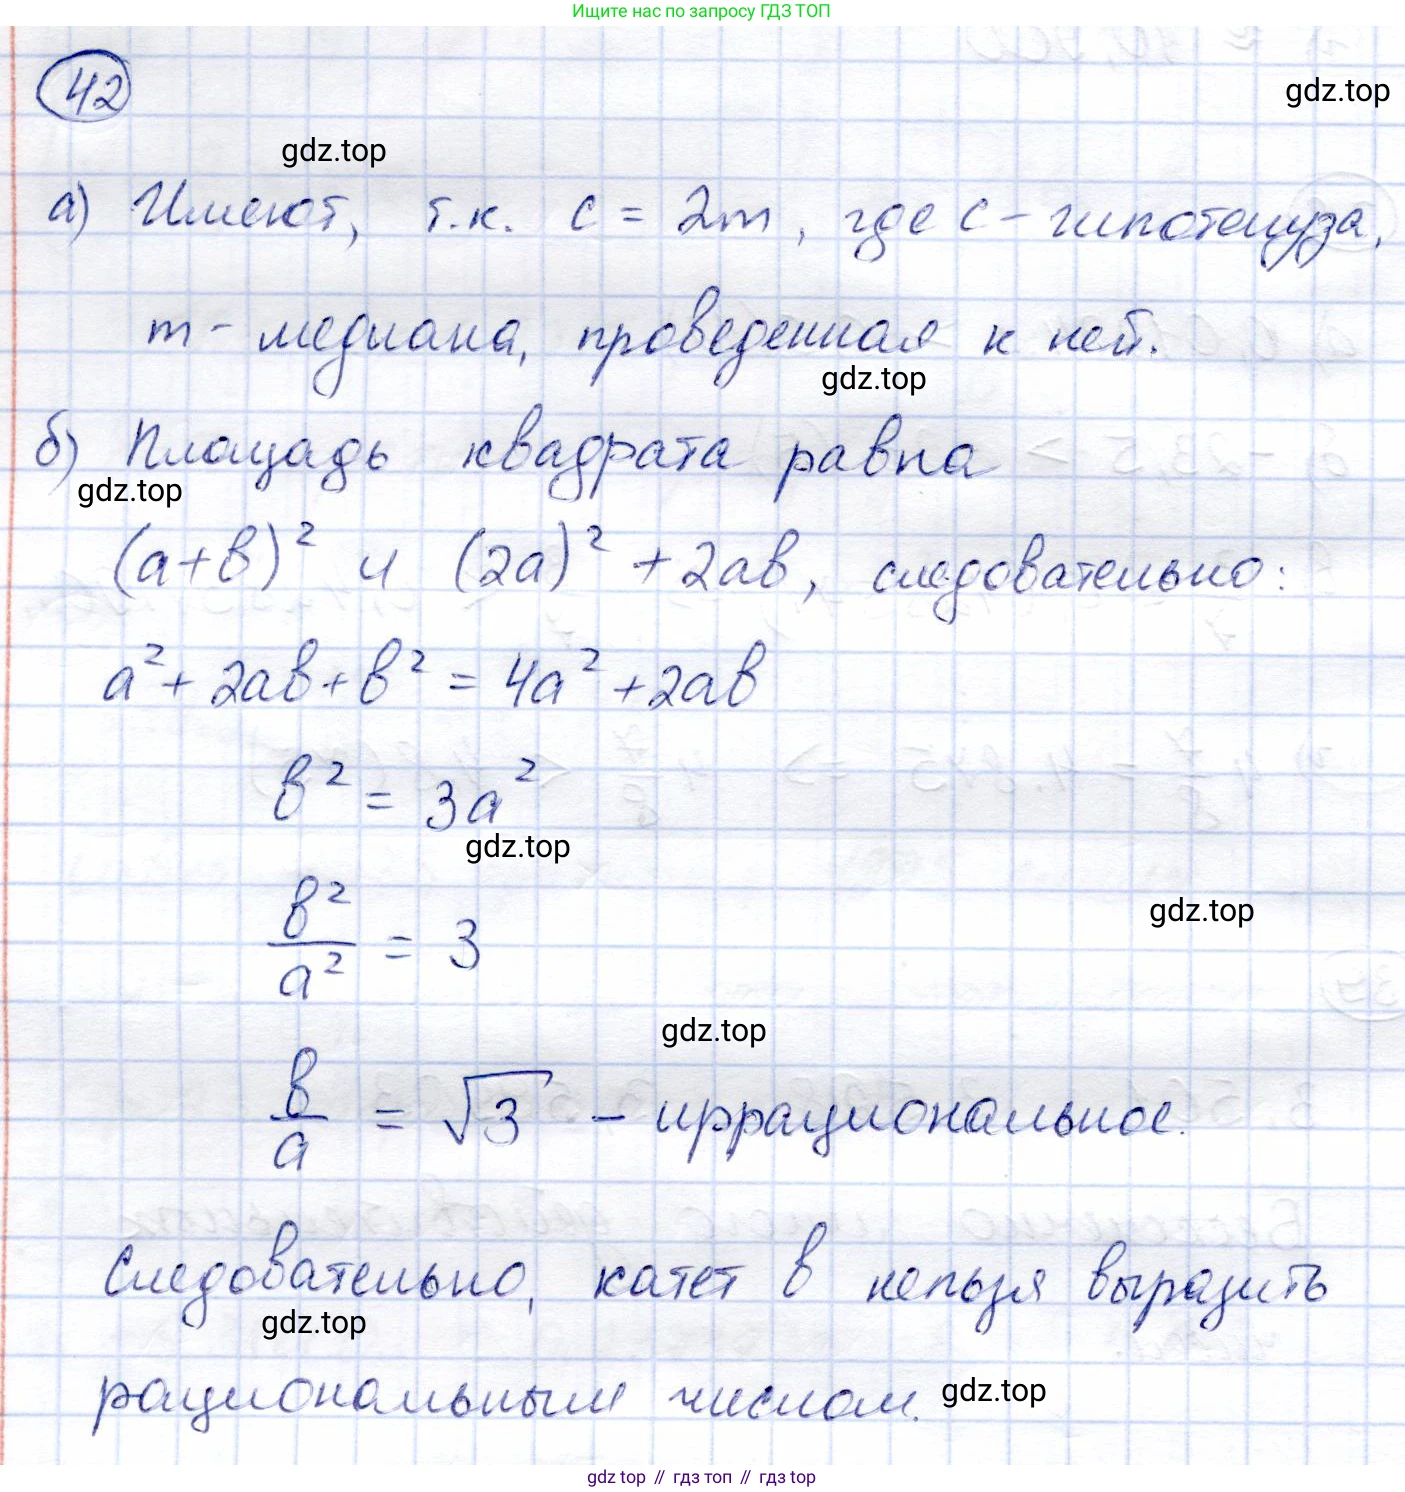 Ищите нас по запросу ГДЗ ТОП
42
gdz.top
gdz.top
а) Имеют, т.к. c = 2m, где c - гипотенуза,
m - медиана, проведенная к ней.
gdz.top
б) Площадь квадрата равна
gdz.top
(a+b)² и (2a)² + 2ab, следовательно:
a² + 2ab + b² = 4a² + 2ab
b² = 3a²
gdz.top
b²/a² = 3
gdz.top
gdz.top
b/a = √3 - иррациональное.
Следовательно, катет b нельзя выразить
gdz.top
рациональным числом.
gdz.top
gdz top // гдз топ // гдз top